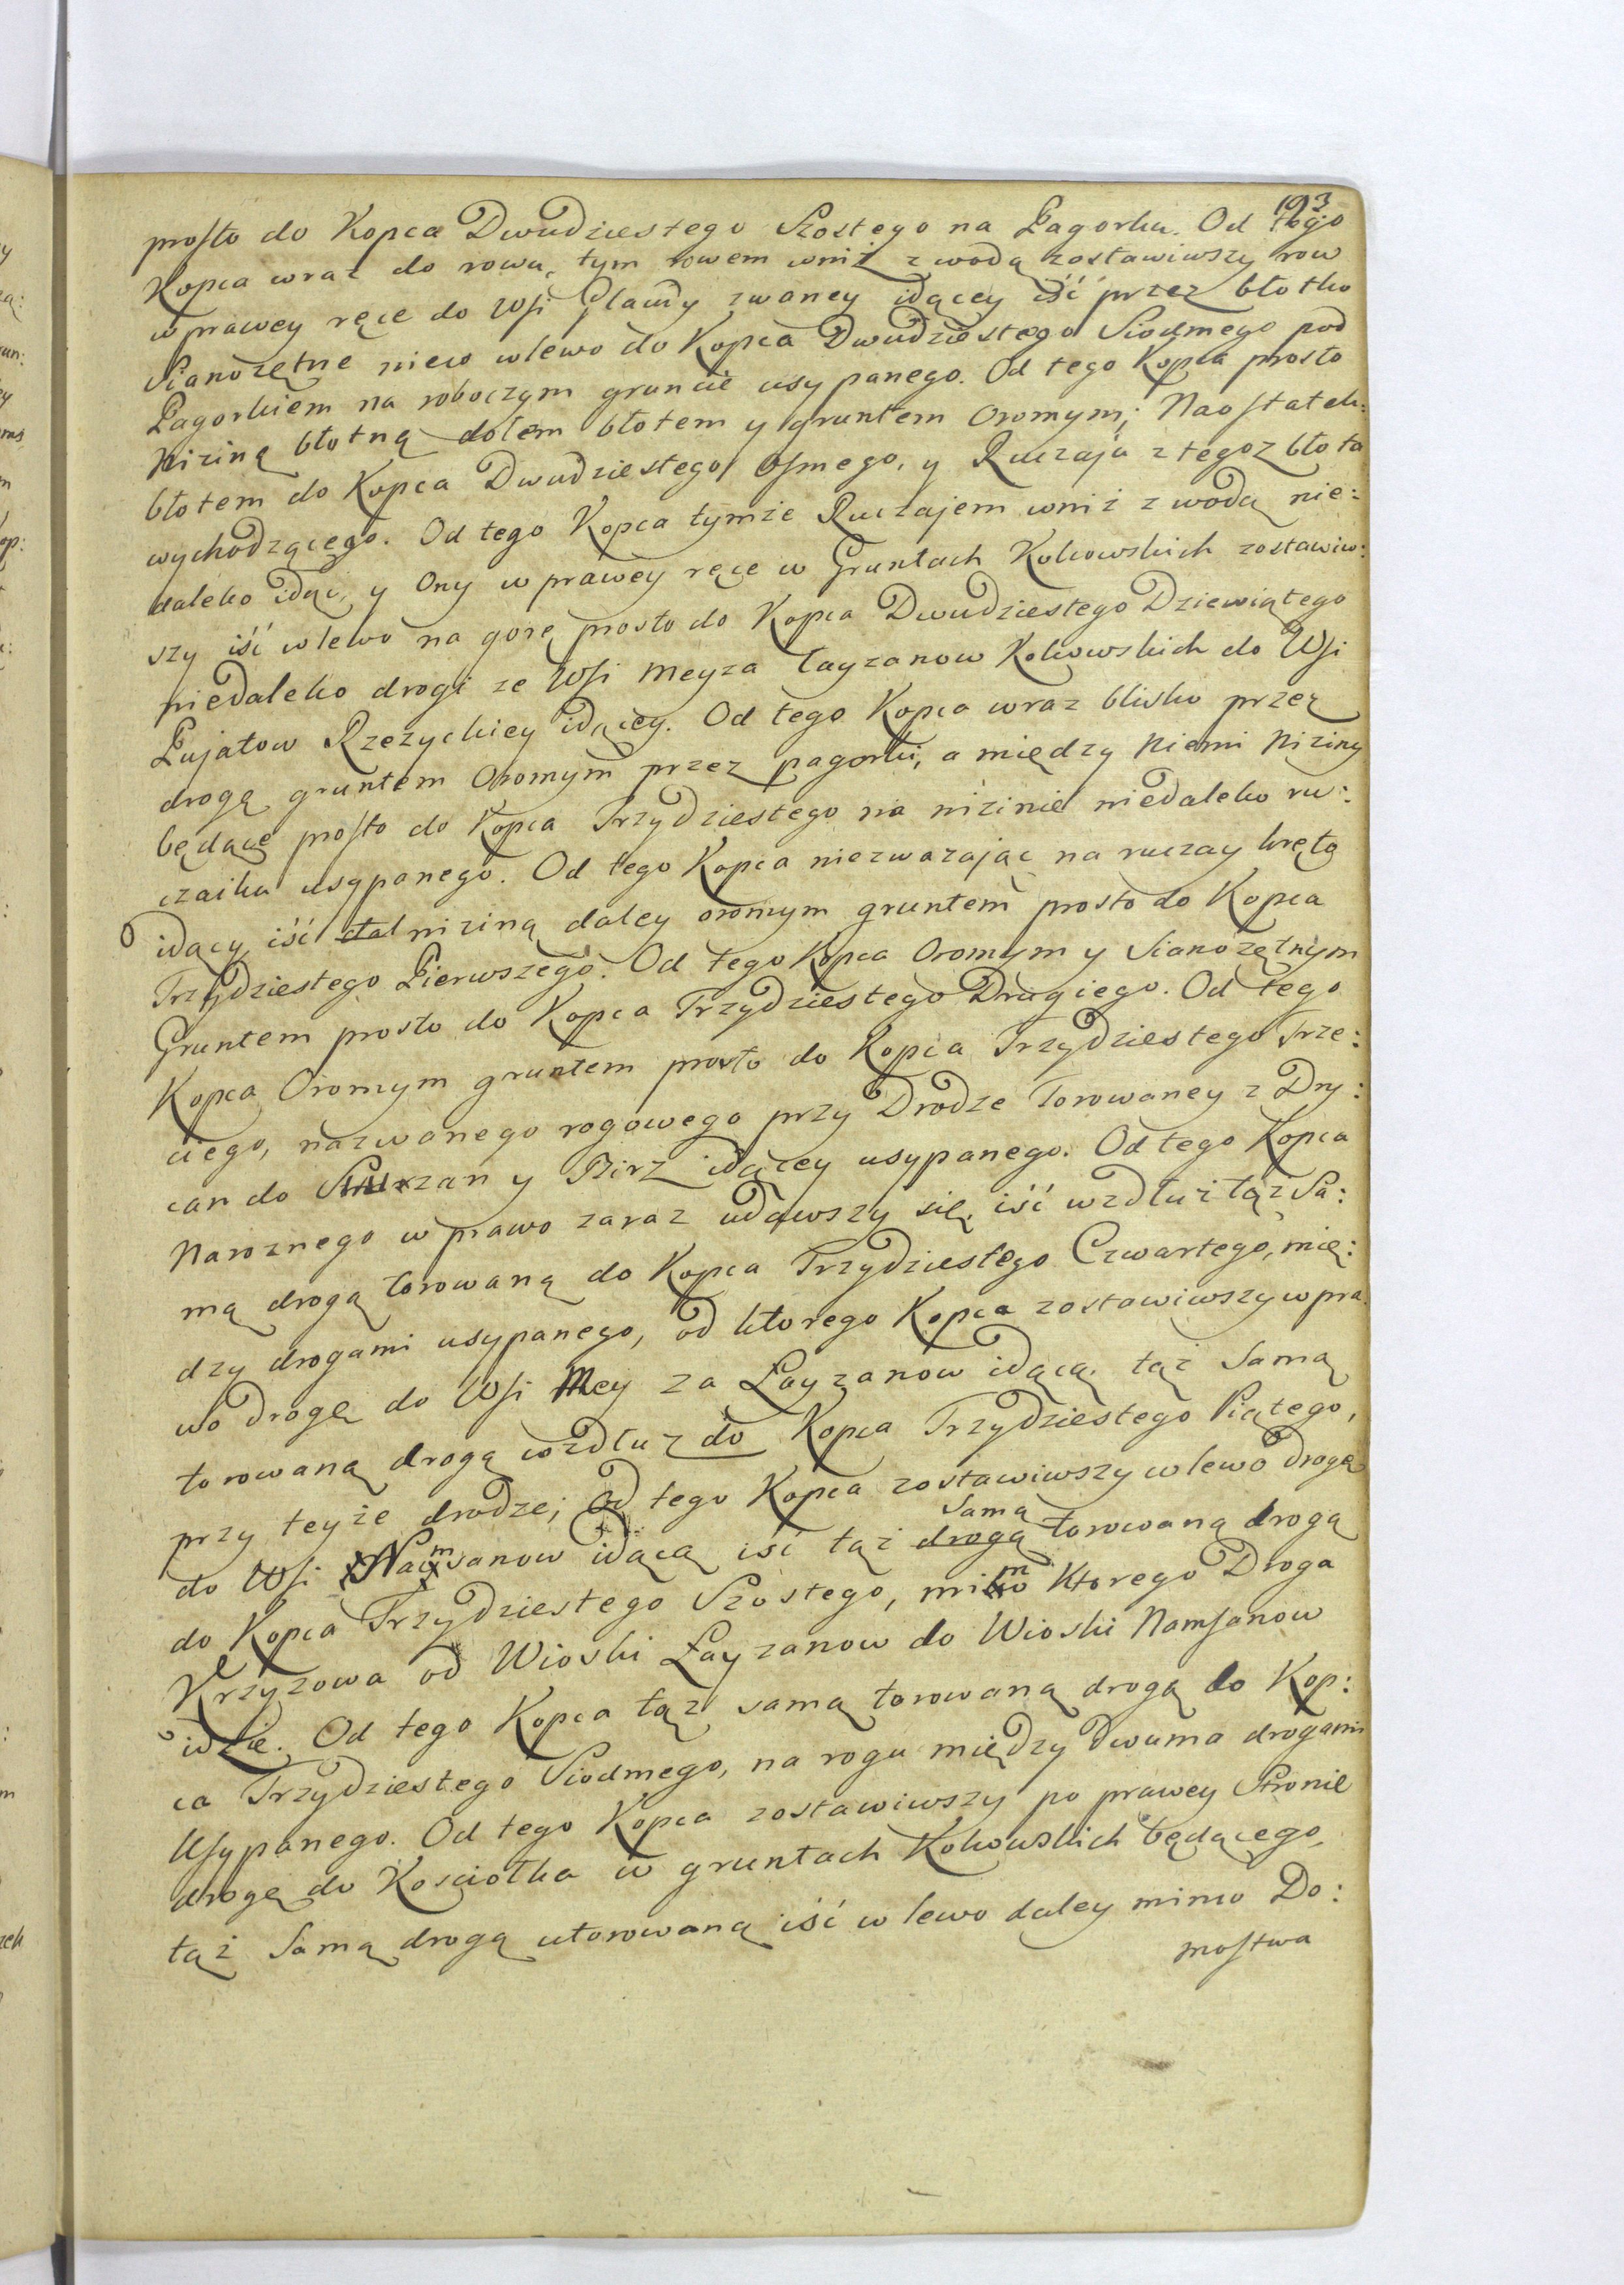 193
prosto do Kopca Dwudziestego Szostego na Pagorku. Od tego
Kopca wraz do rowu, tym rowem wniż z wodą zostawiwszy row
w prawey ręce do Wsi Plawdy zwaney idącey iść przez błotko
Sianozętne nieco wlewo do Kopca Dwudziestego Siodmego pod
Pagorkiem na roboczym gruncie usypanego. Od tego Kopca prosto
Niziną błotną dołem błotem y gruntem Oromym; Naostatek:
błotem do Kopca Dwudziestego Osmego, y Ruczaju z tegoz błota
wychodzącego. Od tego Kopca tymże Ruczajem wniż z wodą nie:
daleko idąc, y Ony w prawey ręce w Gruntach Kokowskich zostawiw:
szy iść wlewo na gorę prosto do Kopca Dwudziestego Dziewiątego
niedaleko drogi ze Wsi Meyza Łayzanow Kokowskich do Wsi
Pujatow Rzezyckiey idącey. Od tego Kopca wraz blisko przez
drogę gruntem Oromym przez pagorki, a między Niemi Niziny
będące prosto do Kopca Trzydziestego na nizinie niedaleko ru:
czaiku usypanego. Od tego Kopca niezwazając na ruczay kręto
idący, iść dal niziną daley oromym gruntem prosto do Kopca
Trzydziestego Pierwszego. Od tego Kopca Oromym y Sianozętnym
Gruntem prosto do Kopca Trzydziestego Drugiego. Od tego
Kopca Oromym gruntem prosto do Kopca Trzydziestego Trze:
ciego, nazwanego rogowego przy Drodze Torowaney z Dry:
can do y Birz idącey usypanego. Od tego Kopca
Naroznego w prawo zaraz udawszy się, iść wzdłuż tąż Sa:
mą drogą torowaną do Kopca Trzydziestego Czwartego, mię:
dzy drogami usypanego, od ktorego Kopca zostawiwszy w pra
wo drogę do Wsi Mey za Łayzanow idącą, tąż Samą
torowaną drogą wzdłuz do Kopca Trzydziestego Piątego,
przy teyże drodze; Od tego Kopca zostawiwszy wlewo drogę
do Wsi Namsanow idącą iść tąż drogą Samą torowaną drogą
do Kopca Trzydziestego Szostego, mimo Ktorego Droga
Krzyzowa od Wioski Łayzanow do Wioski Namsanow
idzie. Od tego Kopca tąz samą torowaną drogą do Kop:
ca Trzydziestego Siodmego, na rogu między dwuma drogami
Usypanego. Od tego Kopca zostawiwszy po prawey Stronie
drogę do Kosciołka w gruntach Kokowskich będącego,
tąż Samą drogą utorowaną iść w lewo daley mimo Do:
mostwa